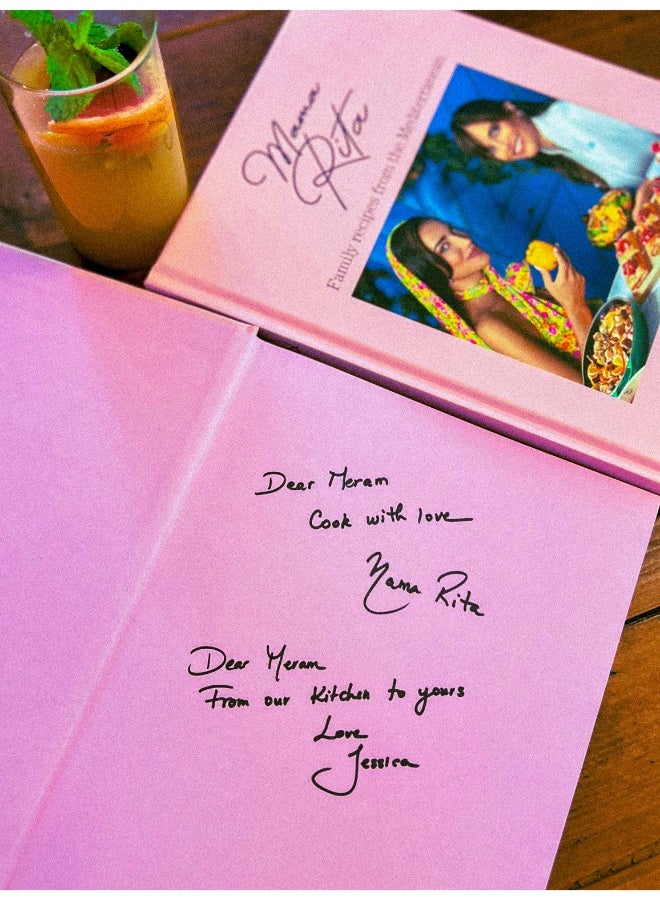 Mama
Rita
Family recipes from the Mediterranean
Dear Meram
Cook with love
Mama Rita
Dear Meram
From our Kitchen to yours
Love
Jessica